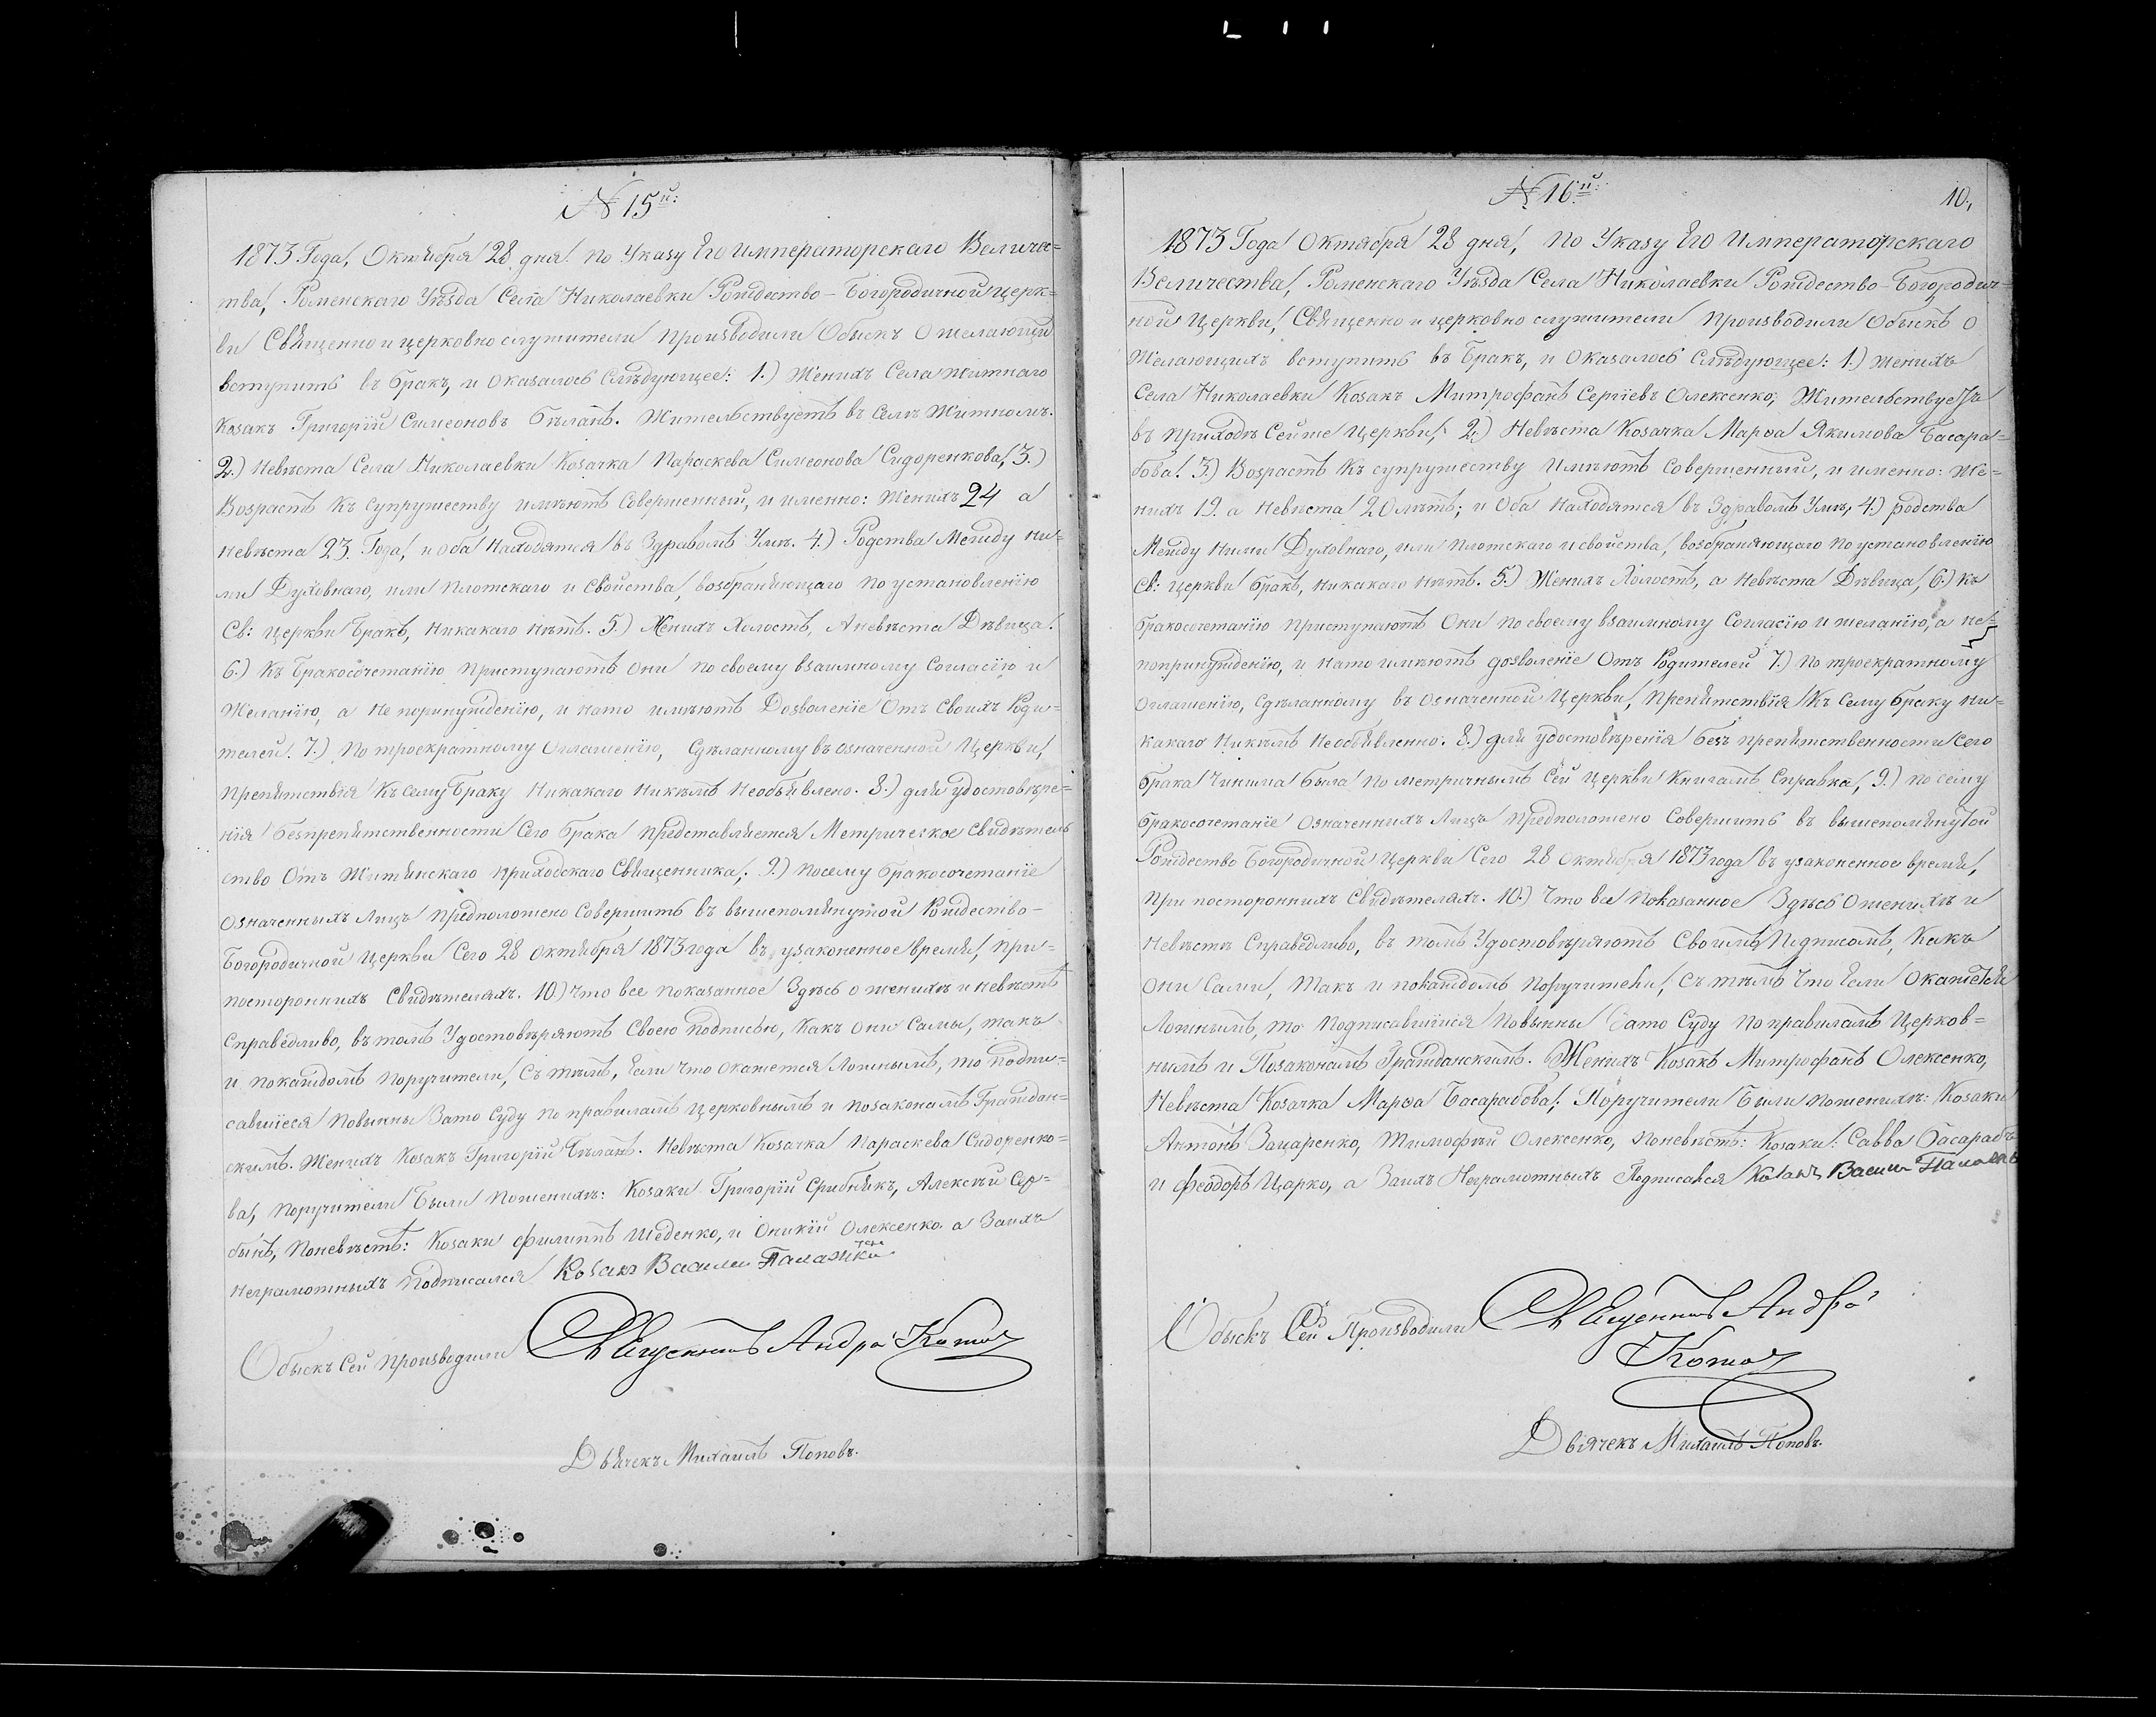 № 15й:
1873 Года, Октября 28 дня. По Указу Его Императорскаго Величес=
тва, Роменскаго Уѣзда Села Николаевки Рождество-Богородичной церк=
ви Священно и церковно служители производили Обыскъ О желающи
вступить въ бракъ, и оказалось Слѣдующее: 1.) Женихъ Села Житнаго
Козакъ Григорій Симеоновъ Бѣланъ. Жительствуетъ въ Селѣ Житномъ.
2.) Невѣста Села Николаевки Козачка Параскева Симеонова Сидоренкова, 3.)
Возрастъ Къ супружеству имѣютъ Совершенный, и именно: Женихъ 24 а
Невѣста 23. Года, и оба Находятся въ Здравомъ Умѣ. 4.) Родства Между ни=
ми Духовнаго, или Плотскаго и Свойства, возбраняющаго по установленію
Св: Церкви Бракъ, Никакаго Нѣтъ. 5.) Женихъ Холостъ, А невѣста Дѣвица.
6.) Къ Бракосочетанію Приступаютъ Они по своему взаимному Согласію и
Желанію, а Не попринужденію, и нато имѣютъ Дозволеніе Отъ Своихъ Роди=
телей. 7.) По троекратному Оглашенію, Сдѣланному въ означенной Церкви,
Препятствія Къ Сему Браку Никакаго Никѣмъ Необъявлено. 8.) для удостовѣре=
нія безпрепятственности Сего брака представляется Метрическое Свидѣтель
ство Отъ Житянскаго приходскаго Священника, 9.) Посему бракосочетаніе
означенныхъ Лицъ предположено Совершить въ вышепомянутой Рождество-
Богородичной Церкви Сего 28 Октября 1873 года въ узаконенное время, При=
постороннихъ Свидѣтеляхъ. 10.) Что все показанное Здѣсь о женихѣ и невѣстѣ
Справедливо, въ томъ Удостовѣряютъ Своею подписью, Какъ они Самы, такъ
и покаждомъ поручители, Съ тѣмъ, Если что окажется Ложнымъ, то подпи=
савшіеся Повыкны Зато Суду по правиламъ церковнымъ и позаконамъ Граждан=
скимъ. Женихъ Козакъ Григорій Бѣланъ. Невѣста Козачка Параскева Сидоренко=
ва, Поручители Были Поженихѣ: Козаки Григорій Срибникъ, Алексѣй Сер=
бинъ, Поневѣстѣ: Козаки Филиппъ Шеденко, и Оникій Олексенко а Заихъ
неграмотныхъ Подписался Козакъ Василий
Обыскъ Сей Производили Священникъ Андрей
Дьячекъ Михаилъ Поповъ.
№ 16й:
10,
1873 Года Октября 28 дня, По Указу Его Императорскаго
Величества, Роменскаго Уѣзда Села Николаевки Рождество-Богородич=
ной Церкви, Священно и церковно служители Производили Обыскъ О
Желающихъ вступить въ Бракъ, и Оказалось Слѣдующее: 1.) Женихъ
Села Николаевки Козакъ Митрофанъ Сергіевъ Олексенко, Жительствуетъ
въ Приходѣ Сейже Церкви, 2.) Невѣста Козачка Марѳа Якимова Басара=
бова. 3.) Возрастъ Къ супружеству Имѣютъ Совершенный, и именно: Же=
нихъ 19. а Невѣста 20 лѣтъ; и Оба Находятся въ Здравомъ Умѣ, 4.) родства
Между Ними Духовнаго, или Плотскаго и свойства, возбраняющаго по установленію
Св: Церкви бракъ, никакаго нѣтъ. 5.) Женихъ Холостъ, а Невѣста Дѣвица, 6.) Къ
бракосочетанію приступаютъ Они по своему взаимному Согласію и желанію, а не=
попринужденію, и нато имѣютъ дозволеніе Отъ Родителей 7.) По троекратному
Оглашенію, Сдѣланному въ означенной Церкви, Препятствія Къ Сему браку ни=
какаго Никѣмъ Необъявленно. 8.) для удостовѣренія безъ препятственности Сего
брака Чинима была По метричнымъ Сей Церкви Книгамъ Справка, 9.) по сему
бракосочетаніе Означеннихъ Лицъ Предположено Совершить въ вышепомянутой
Рождество Богородичной Церкви Сего 28 Октября 1873 года въ узаконенное время,
При постороннихъ Свидѣтеляхъ. 10.) Что все Показанное Здѣсь О женихѣ и
Невѣстѣ Справедливо, въ томъ Удостовѣряютъ Своимъ Подписомъ, Какъ
Они Сами, Такъ и покаждомъ Поручители, Съ тѣмъ Что Если Окажется
Ложнымъ, то Подписавшіися Повыкны Зато Суду По правиламъ Церков=
нымъ и Позаконамъ Гражданскимъ. Женихъ Козакъ Митрофанъ Олексенко,
Невѣста Козачка Марѳа Басарабова, Поручители Были поженихѣ: Козаки
Антонъ Зацаренко, Тимофѣй Олексенко, Поневѣстѣ: Козаки: Савва Басарабъ
и Феодоръ Царко, а Заихъ Неграмотныхъ Подписался Козакъ Васили
Обыскъ Сей Производили Священникъ Андрей
Дьячекъ Михаилъ Поповъ.